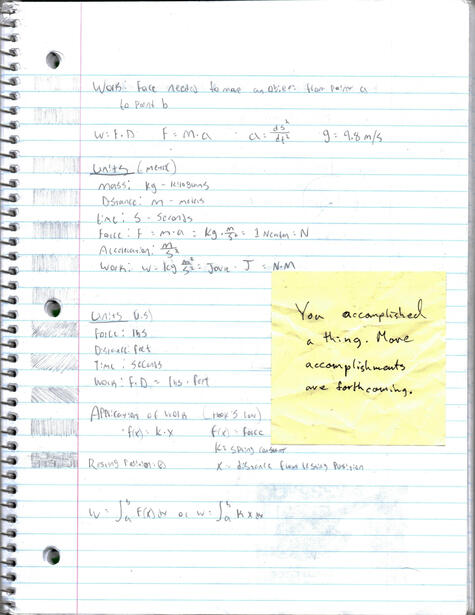 Work: Force needed to move an object from point a
to point b
W = F.D F = m.a a = ds²/dt² g = 9.8 m/s
Units (metric)
Mass: kg - kilograms
Distance: m - meters
time: s - seconds
Force: F = m.a = kg . m/s² = 1 Newton = N
Acceleration: m/s²
Work: W = kg m²/s² = Joule . J = N.M
Units (U.S)
Force: lbs
Distance: feet
Time: seconds
Work: F.D. = lbs . feet
Application of Work (Hook's law)
f(x) = k.x f(x) = force
k = spring constant
Resting Position: 0 x = distance from resting position
W = ∫ₐᵇ F(x) dx or W = ∫ₐᵇ k x dx
You accomplished
a thing. More
accomplishments
are forthcoming.